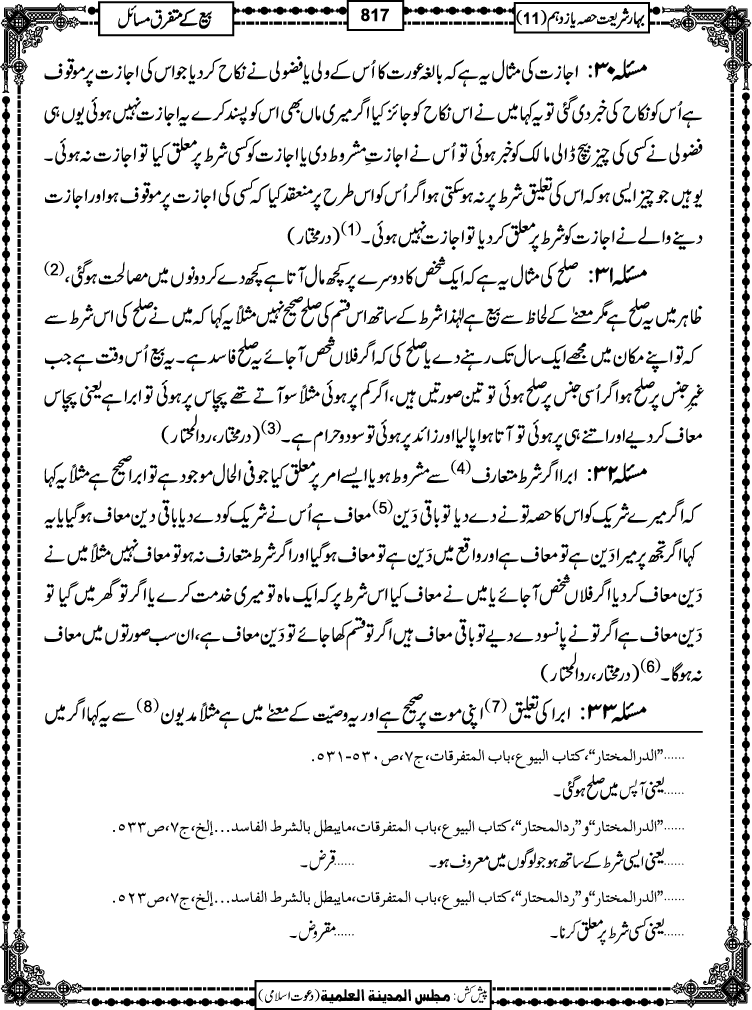 بہارِشریعت حصہ یازدہم (11)
817
بیع کے متفرق مسائل
مسئلہ ۳۰: اجازت کی مثال یہ ہے کہ بالغہ عورت کا اُس کے ولی یا فضولی نے نکاح کردیا جو اس کی اجازت پر موقوف
ہے اُس کو نکاح کی خبر دی گئی تو یہ کہا میں نے اس نکاح کو جائز کیا اگر میری ماں بھی اس کو پسند کرے یہ اجازت نہیں ہوئی یوں ہی
فضولی نے کسی کی چیز بیچ ڈالی مالک کو خبر ہوئی تو اُس نے اجازتِ مشروط دی یا اجازت کو کسی شرط پر معلق کیا تو اجازت نہ ہوئی۔
یوہیں جو چیز ایسی ہو کہ اس کی تعلیق شرط پر نہ ہوسکتی ہو اگر اُس کو اس طرح پر منعقد کیا کہ کسی کی اجازت پر موقوف ہو اور اجازت
دینے والے نے اجازت کو شرط پر معلق کردیا تو اجازت نہیں ہوئی۔(1) (درمختار)
مسئلہ ۳۱: صلح کی مثال یہ ہے کہ ایک شخص کا دوسرے پر کچھ مال آتا ہے کچھ دے کر دونوں میں مصالحت ہوگئی،(2)
ظاہر میں یہ صلح ہے مگر معنےٰ کے لحاظ سے بیع ہے لہٰذا شرط کے ساتھ اس قسم کی صلح صحیح نہیں مثلاً یہ کہا کہ میں نے صلح کی اس شرط سے
کہ تو اپنے مکان میں مجھے ایک سال تک رہنے دے یا صلح کی کہ اگر فلاں شخص آجائے یہ صلح فاسد ہے۔ یہ بیع اُس وقت ہے جب
غیرِ جنس پر صلح ہو اگر اُسی جنس پر صلح ہوئی تو تین صورتیں ہیں، اگر کم پر ہوئی مثلاً سو آتے تھے پچاس پر ہوئی تو ابرا ہے یعنی پچاس
معاف کردیے اور اتنے ہی پر ہوئی تو آتا ہوا پالیا اور زائد پر ہوئی تو سود و حرام ہے۔(3) (درمختار، ردالمحتار)
مسئلہ ۳۲: ابرا اگر شرط متعارف(4) سے مشروط ہو یا ایسے امر پر معلق کیا جو فی الحال موجود ہے تو ابرا صحیح ہے مثلاً یہ کہا
کہ اگر میرے شریک کو اس کا حصہ تو نے دے دیا تو باقی دَین(5) معاف ہے اُس نے شریک کو دے دیا باقی دین معاف ہوگیا یا یہ
کہا اگر تجھ پر میرا دَین ہے تو معاف ہے اور واقع میں دَین ہے تو معاف ہوگیا اور اگر شرط متعارف نہ ہو تو معاف نہیں مثلاً میں نے
دَین معاف کردیا اگر فلاں شخص آجائے یا میں نے معاف کیا اس شرط پر کہ ایک ماہ تو میری خدمت کرے یا اگر تو گھر میں گیا تو
دَین معاف ہے اگر تو نے پانسو دے دیے تو باقی معاف ہیں اگر تو قسم کھا جائے تو دَین معاف ہے، ان سب صورتوں میں معاف
نہ ہوگا۔(6) (درمختار، ردالمحتار)
مسئلہ ۳۳: ابرا کی تعلیق(7) اپنی موت پر صحیح ہے اور یہ وصیّت کے معنےٰ میں ہے مثلاً مدیون(8) سے یہ کہا اگر میں
......”الدرالمختار“، کتاب البیوع، باب المتفرقات، ج۷، ص۵۳۰-۵۳۱.
......یعنی آپس میں صلح ہوگئی۔
......”الدرالمختار“و”ردالمحتار“، کتاب البیوع، باب المتفرقات، مایبطل بالشرط الفاسد...إلخ، ج۷، ص۵۳۳.
......یعنی ایسی شرط کے ساتھ ہو جو لوگوں میں معروف ہو۔ ......قرض۔
......”الدرالمختار“و”ردالمحتار“، کتاب البیوع، باب المتفرقات، مایبطل بالشرط الفاسد...إلخ، ج۷، ص۵۲۳.
......یعنی کسی شرط پر معلق کرنا۔ ......مقروض۔
پیش کش: مجلس المدینة العلمیة (دعوت اسلامی)